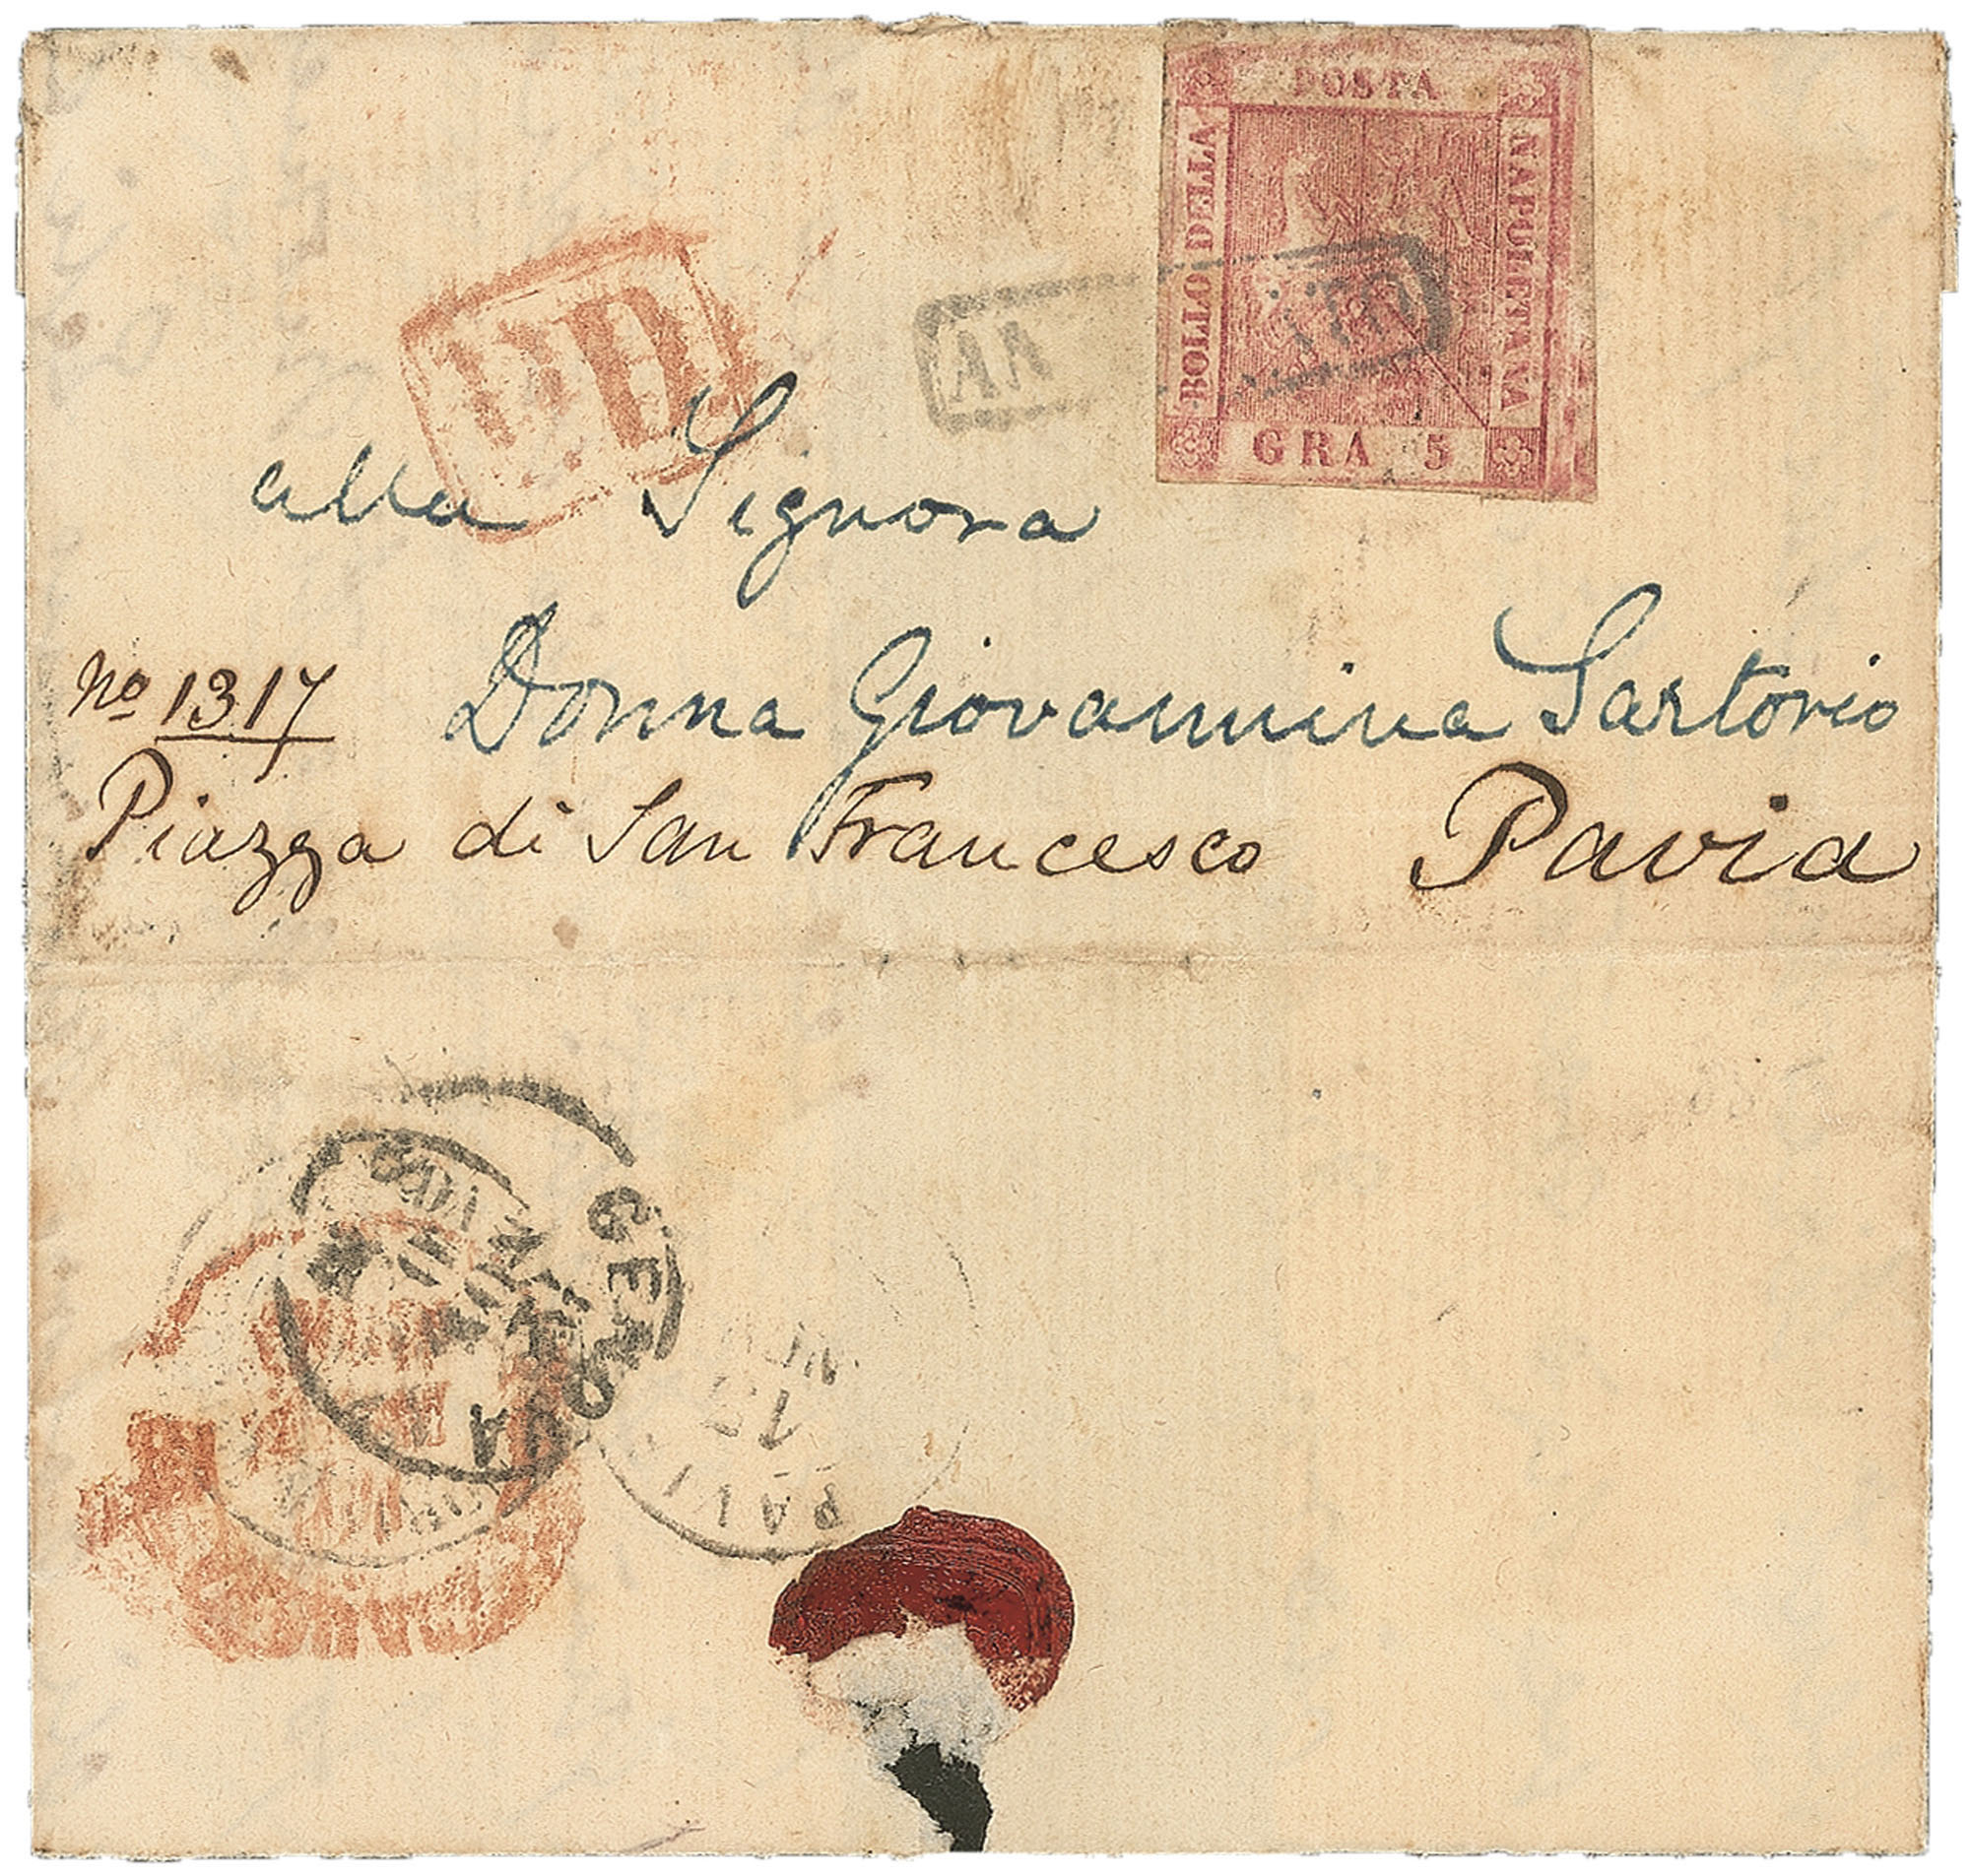 POSTA
BOLLO DELLA
NAPOLETANA
GRA 5
PD
AN
alla Signora
No 1317 Donna Giovannina Sartorio
Piazza di San Francesco Pavia
GENOVA
PAVIA
12